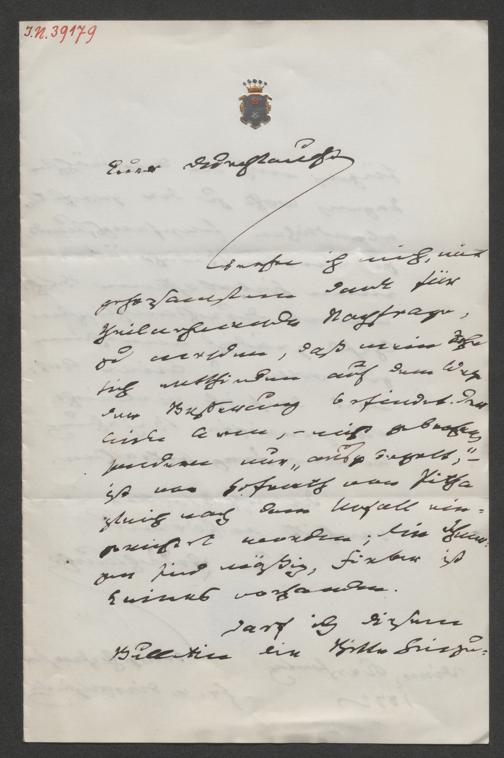 J.N. 39179
Euer Durchlaucht
beehre ich mich, mit
gehorsamstem Dank für
theilnehmende Nachfrage,
zu melden, daß mein
sich entschieden auf dem Weg
der Besserung befindet. Der
linke Arm, – nicht gebrochen
sondern nur „ausgekegelt," –
ist von Hofrath von Pitha
gleich nach dem Unfall ein-
gerichtet worden; die Schmer-
zen sind mäßig, Fieber ist
keines vorhanden.
Darf ich diesem
Bulletin die Bitte hinzu-